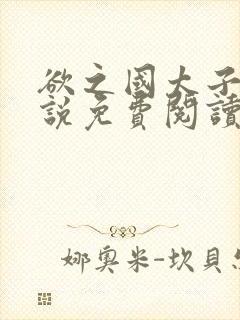 欲之國大子
說免費閱讀
娜奧米-坎貝